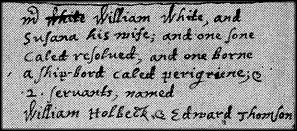 mr white William White, and
Susana his wife; and one sone
Caled resolved, and one borne
a ship-bord caled perigriene; &
·2· servants, named
William Holbeck, & Edward Thomson